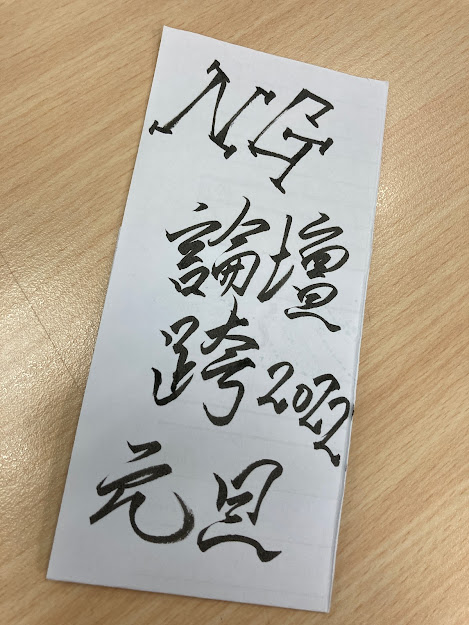 NG
論壇
跨2022
元旦